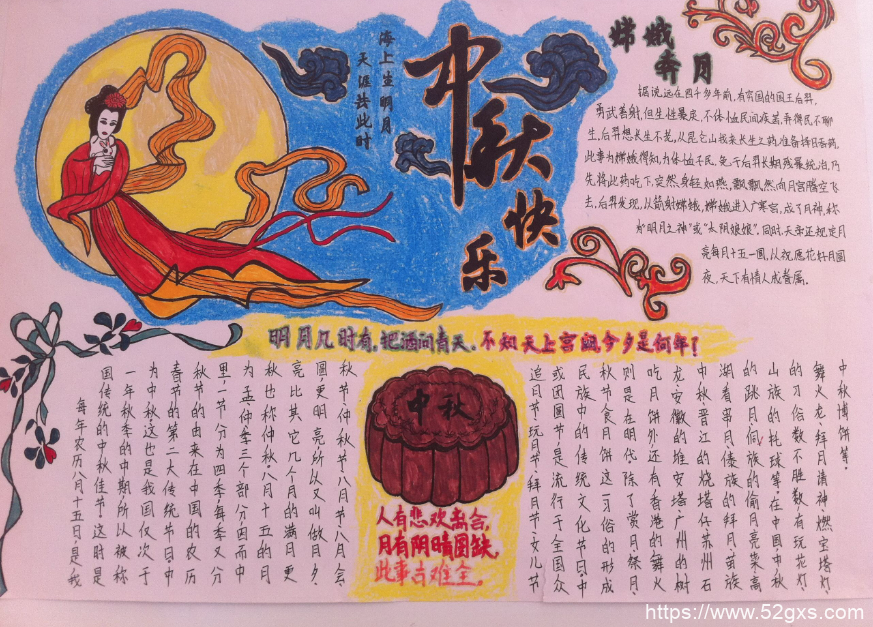 海上生明月
天涯共此时
中秋快乐
嫦娥
奔月
据说远在四千多年前,有穷国的国王后羿,
勇武善射,但生性暴戾,不体恤民间疾苦,弄得民不聊
生。后羿想长生不老,从昆仑山找来长生之药,准备择日吞药,
此事为嫦娥得知,为体恤平民,免于后羿长期残暴统治,乃
先将此药吃下,突然,身轻如燕,飘飘然,向月宫腾空飞
去。后羿发现,以箭射嫦娥,嫦娥进入广寒宫,成了月神,称
为"明月之神"或"太阴娘娘"。同时,天帝还规定月
亮每月十五一圆,以祝愿花好月圆
夜,天下有情人成眷属。
明月几时有,把酒问青天。不知天上宫阙,今夕是何年?
每年农历八月十五日,是我
国传统的中秋佳节。这时是
一年秋季的中期,所以被称
为中秋。这也是我国仅次于
春节的第二大传统节日。中
秋节的由来在中国的农历
里,一节分为四季,每季又分
为孟仲季三个部分,因而中
秋也称仲秋。八月十五的月
亮比其它几个月的满月更
圆更明亮,所以又叫做月夕
秋节、仲秋节、八月节、八月会
中秋
人有悲欢离合,
月有阴晴圆缺,
此事古难全。
追月节、玩月节、拜月节、女儿节
或团圆节,是流行于全国众
民族中的传统文化节日。中
秋节食月饼这一习俗的形成
则是在明代。除了赏月、祭月
吃月饼外,还有香港的舞火
龙、安徽的堆宝塔、广州的树
中秋、晋江的烧塔仔、苏州石
湖看串月、傣族的拜月、苗族
的跳月、侗族的偷月亮菜、高
山族的托球等。在中国,中秋
的习俗数不胜数,有玩花灯、
舞火龙、拜月请神、燃宝塔灯、
中秋博饼等。
https://www.52gxs.com